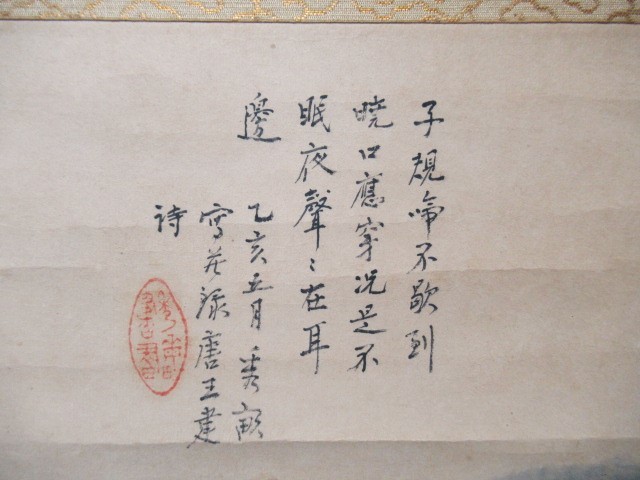 子規啼不歇到
曉口應穿況是不
眠夜聲〻在耳
邊
乙亥五月 秀
寫并録唐王建
詩